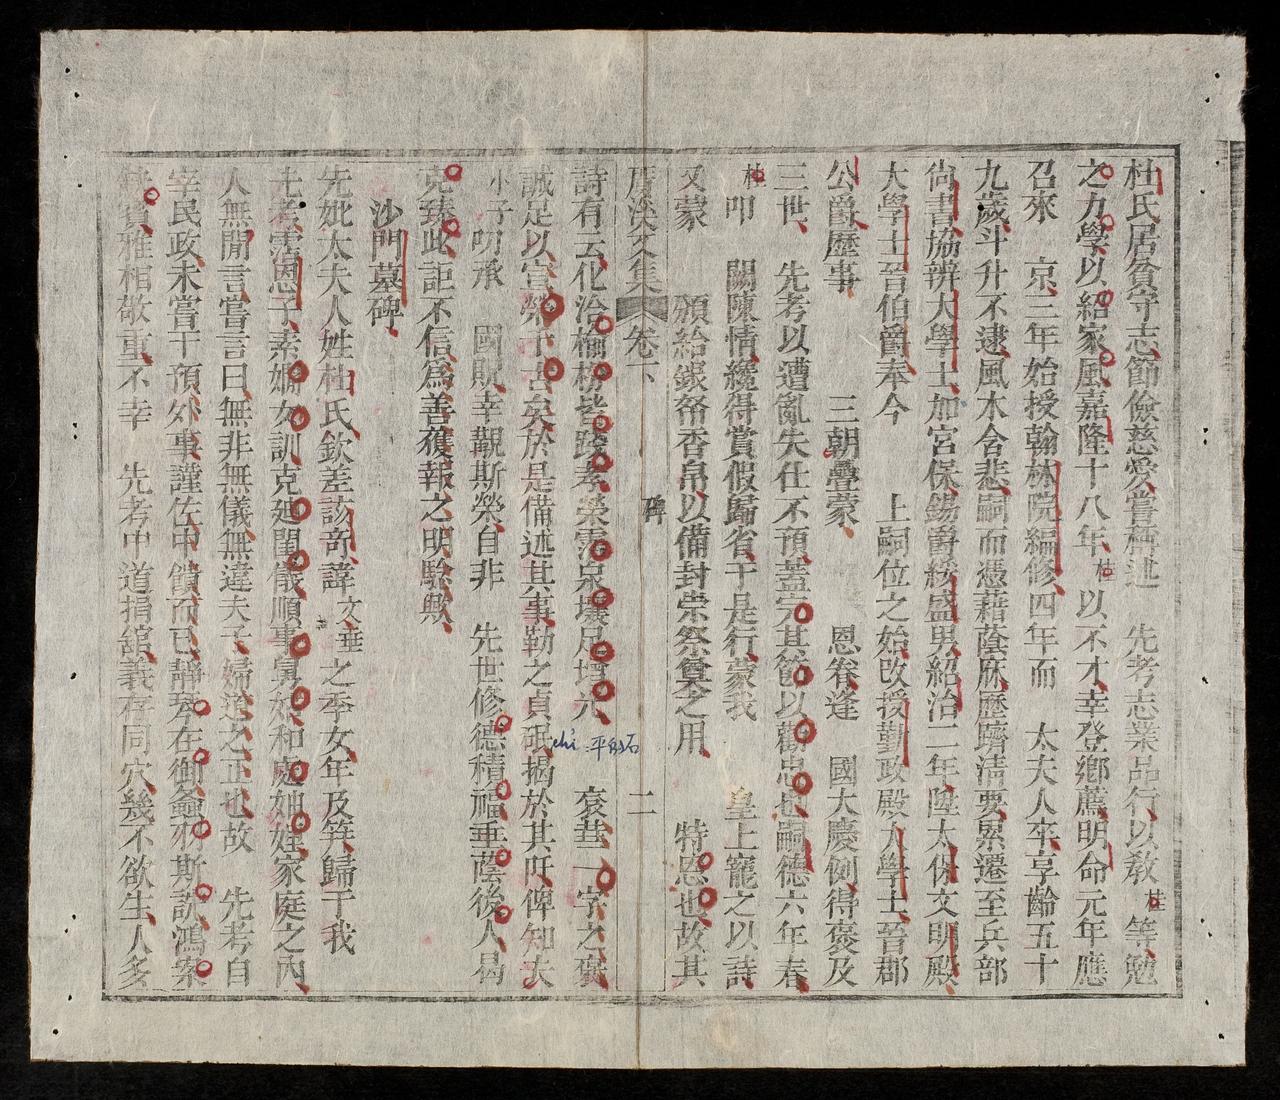 杜氏居貧守志節儉慈愛嘗稱述　先考志業品行以敎桂等勉
之力學以紹家風嘉隆十八年桂以不才幸登鄉薦明命元年應
召來　京三年始授翰林院編修四年而　太夫人卒享齡五十
九歲斗升不逮風木含悲嗣而憑藉蔭庥歷躋淸要累遷至兵部
尙書協辨大學士加宮保錫爵綏盛男紹治二年陞太保文明殿
大學士晉伯爵奉今　上嗣位之始改授勤政殿大學士晉郡
公爵歷事　三朝疊蒙　恩眷逢　國大慶例得褒及
三世　先考以遭亂失仕不預蓋完其節以勸忠也嗣德六年春
桂叩　闕陳情纔得賞假歸省于是行蒙我　皇上寵之以詩
又蒙　頒給銀帑香帛以備封崇祭奠之用　特恩也故其
廣溪文集　卷下　碑　二
詩有云化洽榆枌皆踐孝榮霑泉壤足增光　袞華一字之褒
誠足以宣榮千古矣於是備述其事勒之貞珉揭於其阡俾知夫
小子叨承　國賦幸覩斯榮自非　先世修德積福垂蔭後人曷
克臻此詎不信爲善獲報之明驗歟
沙門墓碑
先妣太夫人姓杜氏欽差該奇諱文華之季女年及笄歸于我
先考霑恩子素嫺女訓克廸閨儀順事舅姑和處妯娌家庭之內
人無閒言嘗言曰無非無儀無違夫子婦道之正也故　先考自
宰民政未嘗干預外事謹佐中饋而已靜琴在御螽羽斯詵鴻案
賓雅相敬重不幸　先考中道捐舘義存同穴幾不欲生人多
chỉ: 平的石